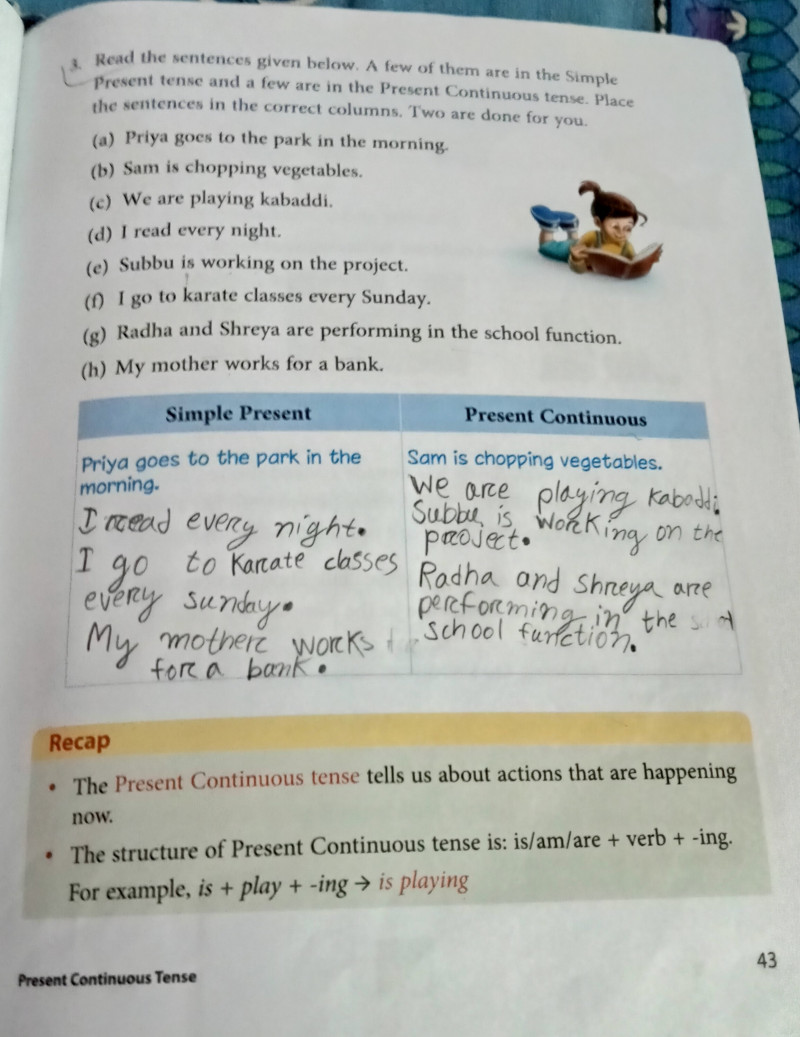 3. Read the sentences given below. A few of them are in the Simple
Present tense and a few are in the Present Continuous tense. Place
the sentences in the correct columns. Two are done for you.
(a) Priya goes to the park in the morning.
(b) Sam is chopping vegetables.
(c) We are playing kabaddi.
(d) I read every night.
(e) Subbu is working on the project.
(f) I go to karate classes every Sunday.
(g) Radha and Shreya are performing in the school function.
(h) My mother works for a bank.
Simple Present
Priya goes to the park in the
morning.
I read every night.
I go to Karate classes
every sunday.
My mother works
for a bank.
Present Continuous
Sam is chopping vegetables.
We are playing Kabaddi
Subbu is working on the
project.
Radha and Shreya are
performing in the
school function.
Recap
• The Present Continuous tense tells us about actions that are happening
now.
• The structure of Present Continuous tense is: is/am/are + verb + -ing.
For example, is + play + -ing → is playing
43
Present Continuous Tense